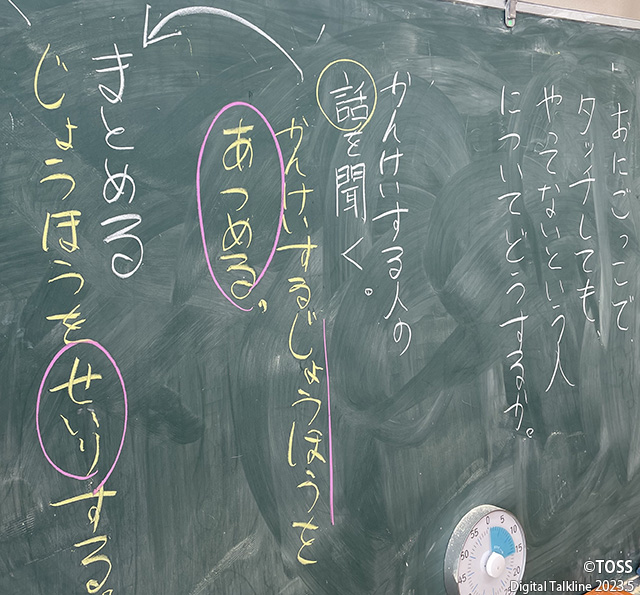 おにごっこで
タッチしても、
やってないという人
についてどうするか。
かんけいする人の
話を聞く。
かんけいするじょうほうを
あつめる。
まとめる
じょうほうを せいりする。
0 5 10 15
45 50 55
©TOSS
Digital Talkline 2023.5